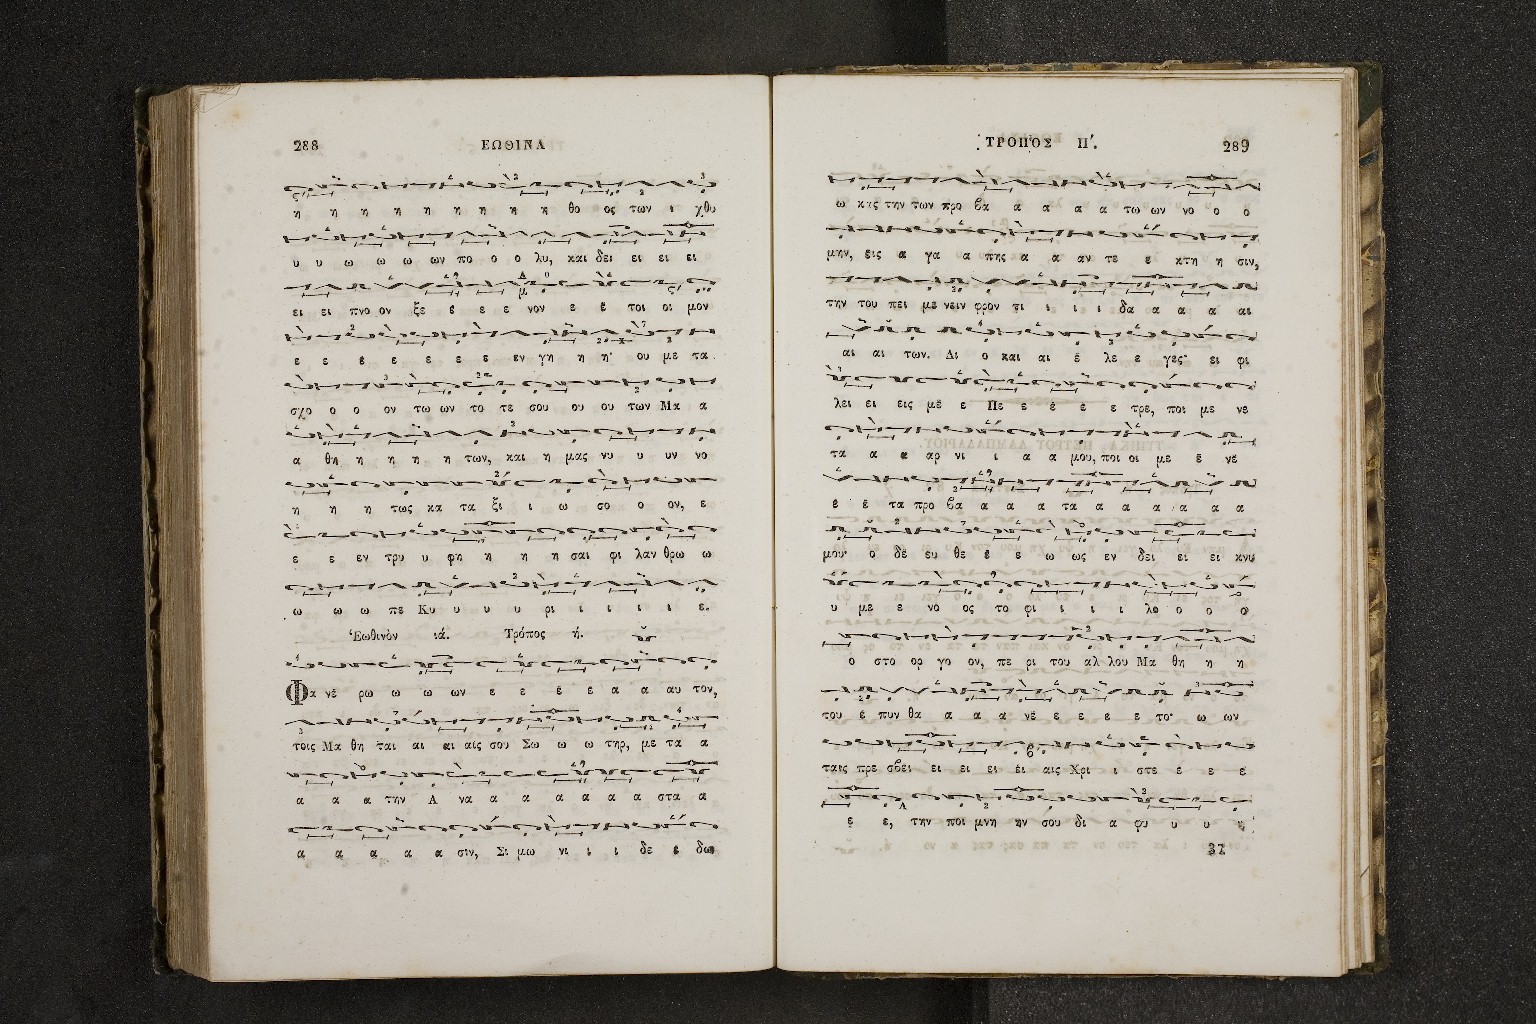 288 ΕΩΘΙΝΑ
η η η η η η η η η θο ος των ι χθυ
υ υ ω ω ω ων πο ο ο λυ, και δει ει ει ει
ει ει πνο ον ξε ε ε ε νον ε ε τοι οι μον
ε ε ε ε ε ε ε εν γη η η· ου με τα
σχο ο ο ον τω ων το τε σου ου ου των Μα α
α θη η η η η των, και η μας νυ υ υν νο
η η η τως κα τα ξι ι ω σο ο ον, ε
ε ε εν τρυ υ φη η η η σαι φι λαν θρω ω
ω ω ω πε Κυ υ υ υ ρι ι ι ι ι ε.
Ἑωθινὸν ιά. Τρόπος ή.
Φα νε ρω ω ω ων ε ε ε ε α α αυ τον,
τοις Μα θη ται αι αι αις σου Σω ω ω τηρ, με τα α
α α α την Α να α α α α α α στα α
α α α α α σιν, Σι μω νι ι ι δε ε δω
ΤΡΟΠΟΣ Π΄. 289
ω κας την των προ βα α α α α τω ων νο ο ο
μην, εις α γα α πης α α αν τε ε κτη η σιν,
την του πει με νειν φρον τι ι ι ι δα α α α αι
αι αι των. Δι ο και αι ε λε ε γες· ει φι
λει ει εις με ε Πε ε ε ε ε τρε, ποι με νε
τα α α αρ νι ι α α μου, ποι οι με ε νε
ε ε τα προ βα α α α τα α α α α α α
μου· ο δε ευ θε ε ε ω ως εν δει ει ει κνυ
υ με ε νο ος το φι ι ι ι λο ο ο ο
ο στο ορ γο ον, πε ρι του αλ λου Μα θη η η
του ε πυν θα α α α νε ε ε ε ε το· ω ων
ταις πρε σβει ει ει ει ει αις Χρι ι στε ε ε ε
ε ε, την ποι μνη ην σου δι α φυ υ υ
37